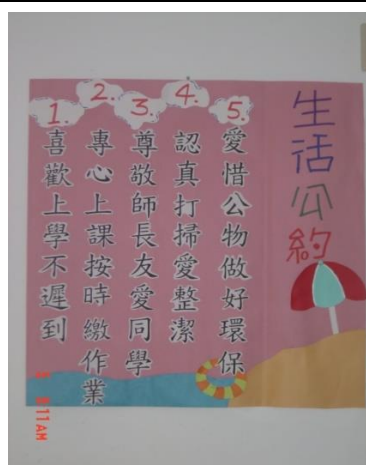 生活公約
1.喜歡上學不遲到
2.專心上課按時繳作業
3.尊敬師長友愛同學
4.認真打掃愛整潔
5.愛惜公物做好環保